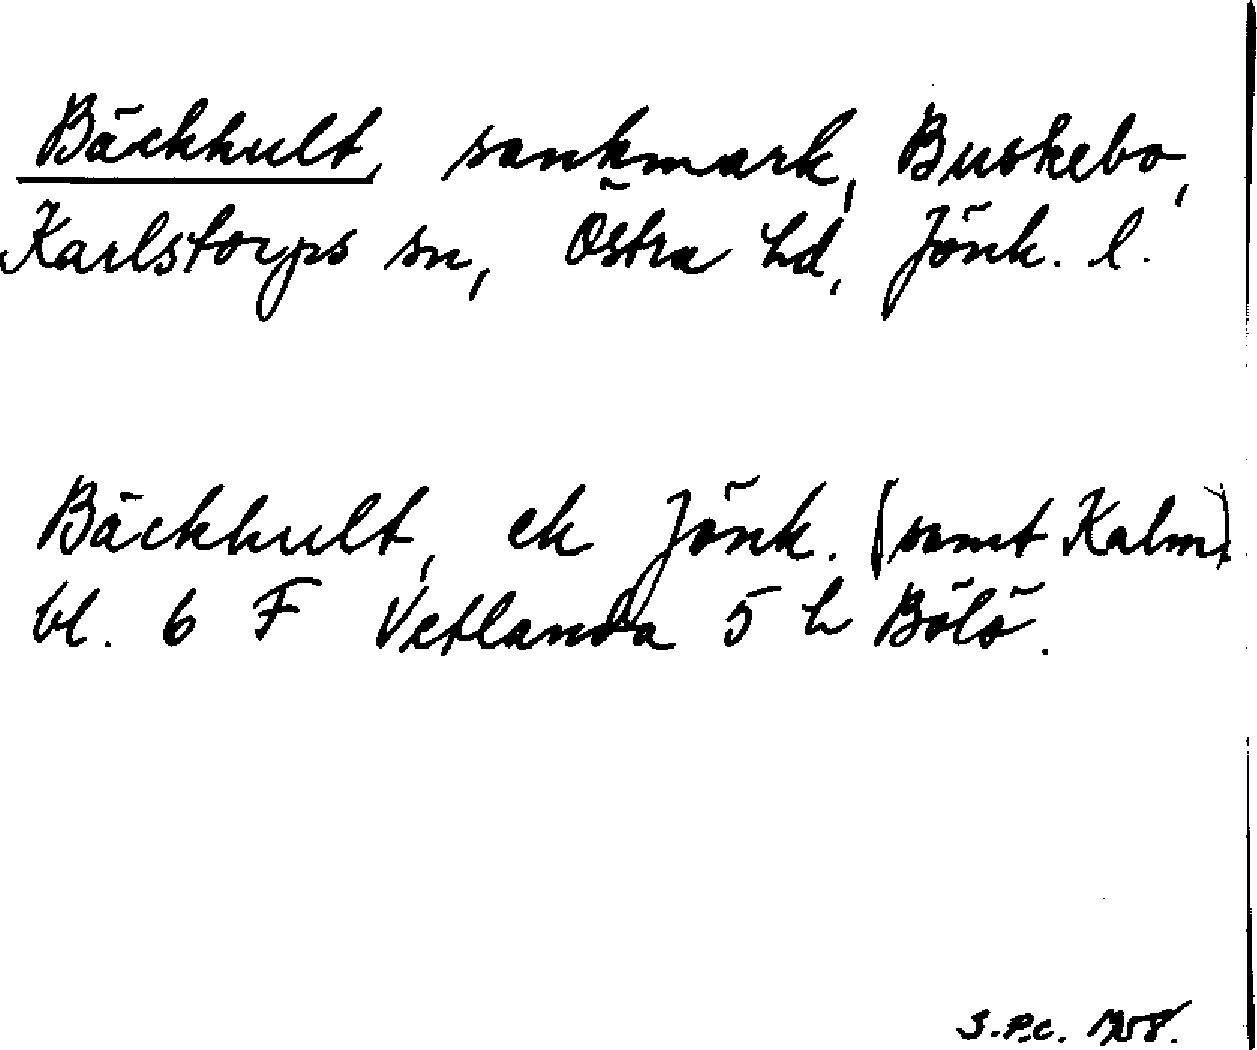 Bäckhult, sankmark, Buskebo,
Karlstorps sn, Östra hd, Jönk. l.
Bäckhult, ek Jönk. (samt Kalm.)
bl. 6 F Vetlanda 5 h Bölö.
S.P.C. 1958.